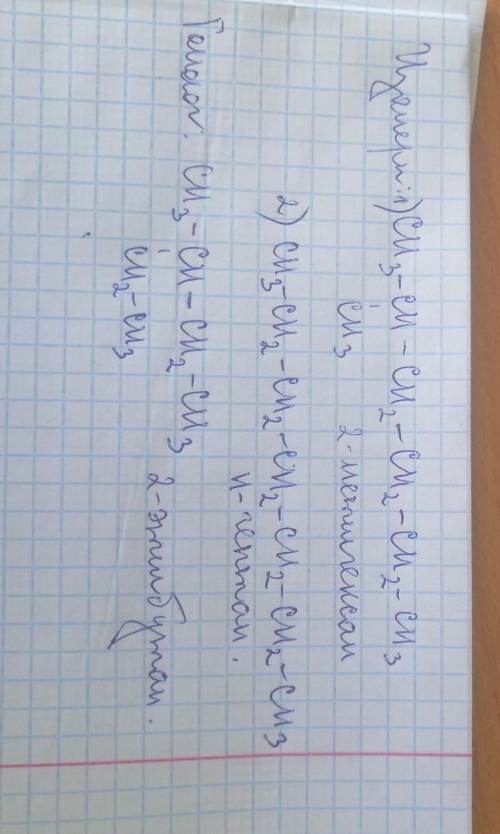 Изомеры: 1) CH3-CH-CH2-CH2-CH2-CH3
CH3 2-метилгексан
2) CH3-CH2-CH2-CH2-CH2-CH2-CH3
н-гептан.
Гомолог: CH3-CH-CH2-CH3
CH2-CH3 2-этилбутан.